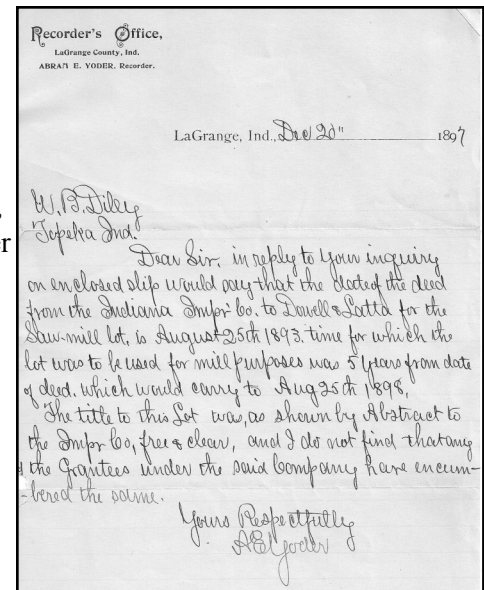 er
Recorder's Office,
LaGrange County, Ind.
ABRAM E. YODER, Recorder.
LaGrange, Ind., Dec 20" 1897
W. B. Diley
Topeka Ind.
Dear Sir. in reply to your inquiry
on enclosed slip would say that the date of the deed
from the Indiana Impr Co. to Dowell & Latta for the
Saw-mill lot, is August 25th 1893. time for which the
lot was to be used for mill purposes was 5 years from date
of deed. which would carry to Aug 25th 1898.
The title to this Lot was, as shown by Abstract to
the Impr Co, free & clear, and I do not find that any
of the Grantees under the said Company have encum-
-bered the same.
Yours Respectfully
AE Yoder